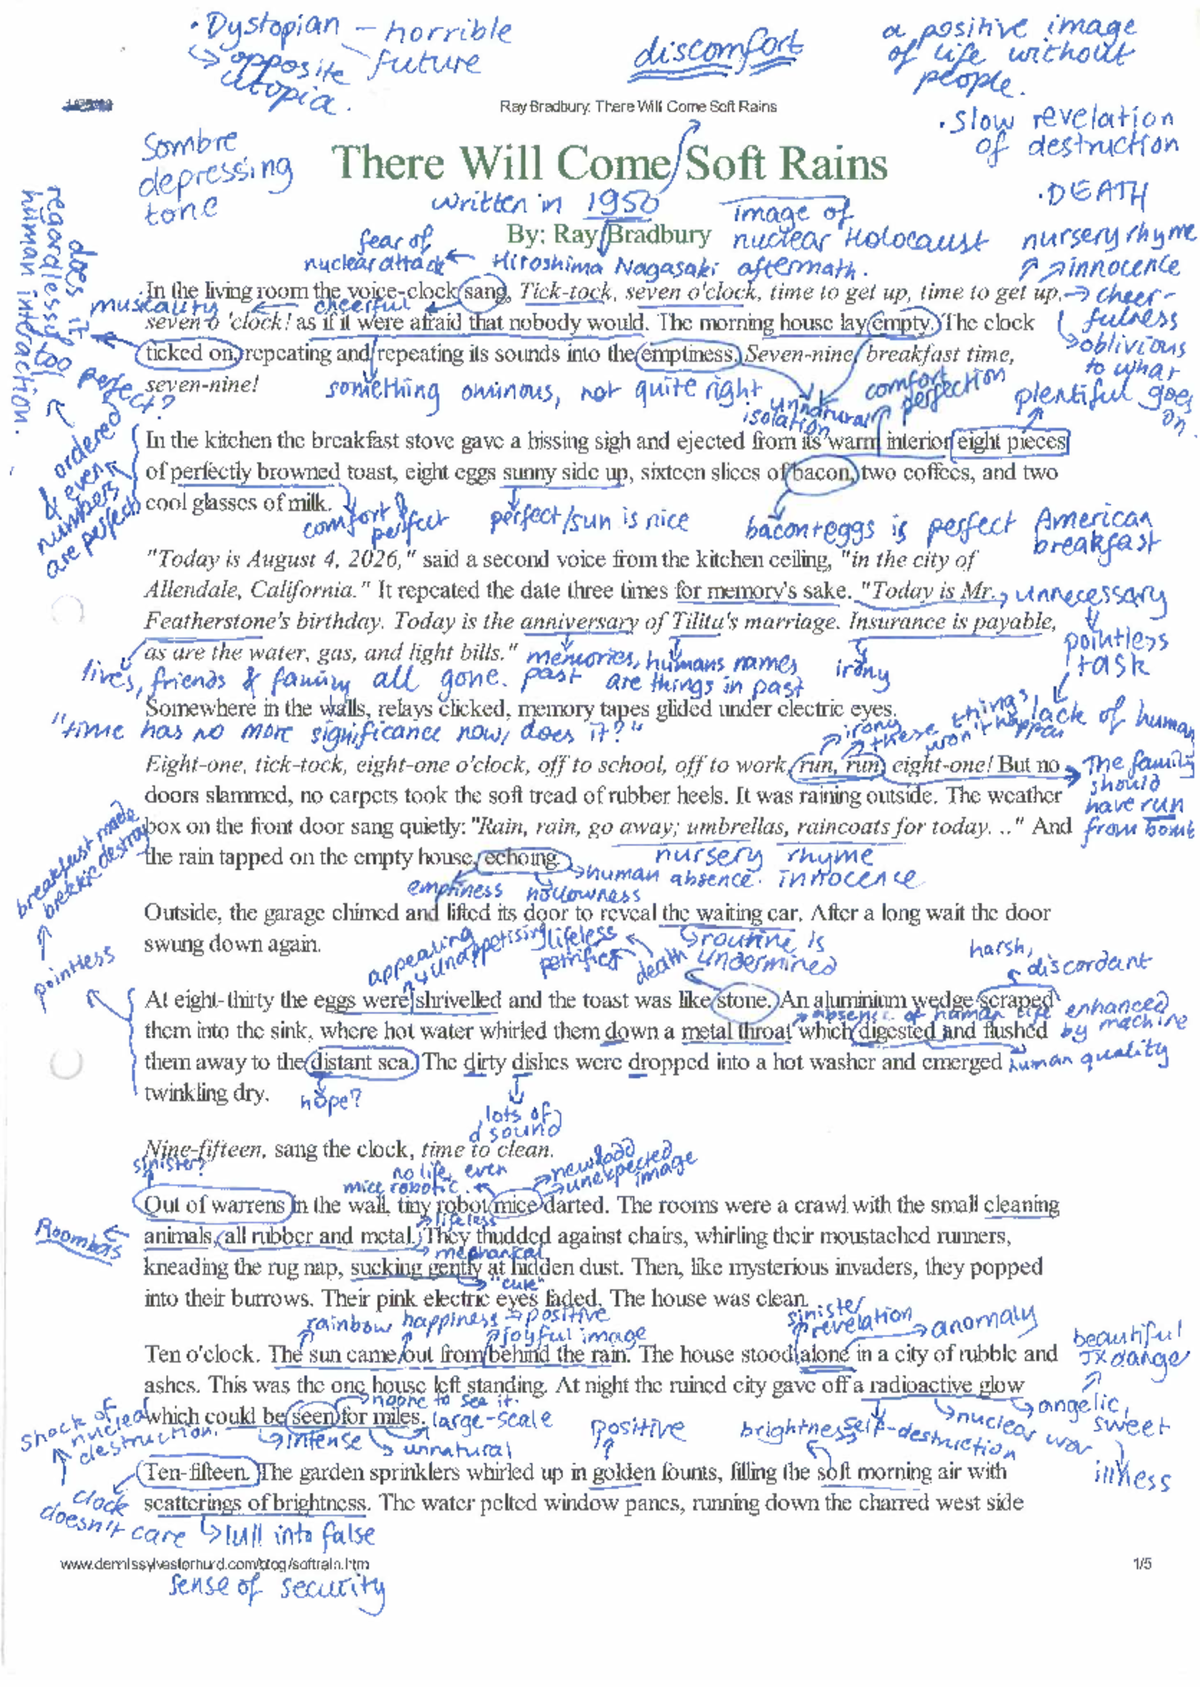 · Dystopian — horrible future
↳ opposite utopia.
discomfort
a positive image of life without people.
· slow revelation of destruction
· DEATH
Ray Bradbury: There Will Come Soft Rains
Sombre depressing tone
There Will Come Soft Rains
written in 1950
By: Ray Bradbury
image of nuclear Holocaust aftermath.
fear of nuclear attack ← Hiroshima Nagasaki
nursery rhyme
↗ innocence
→ cheerfulness
↘ oblivious to what goes on.
does it regardless of human intraction.
musicality
cheerful
In the living room the voice-clock sang, Tick-tock, seven o'clock, time to get up, time to get up,
seven o 'clock! as if it were afraid that nobody would. The morning house lay empty. The clock
ticked on, repeating and repeating its sounds into the emptiness. Seven-nine, breakfast time,
seven-nine!
something ominous, not quite right
unnatural
isolation
comfort
perfection
plentiful
too perfect?
ordered & even numbers are perfect
In the kitchen the breakfast stove gave a hissing sigh and ejected from its warm interior eight pieces
of perfectly browned toast, eight eggs sunny side up, sixteen slices of bacon, two coffees, and two
cool glasses of milk.
comfort & perfect
perfect/sun is nice
bacon+eggs is perfect American breakfast
"Today is August 4, 2026," said a second voice from the kitchen ceiling, "in the city of
Allendale, California." It repeated the date three times for memory's sake. "Today is Mr.
Featherstone's birthday. Today is the anniversary of Tilita's marriage. Insurance is payable,
as are the water, gas, and light bills."
unnecessary
pointless task
memories, past
humans names are things in past
irony
lives, friends & family all gone.
Somewhere in the walls, relays clicked, memory tapes glided under electric eyes.
"time has no more significance now, does it?"
irony
these things won't happen
lack of human
Eight-one, tick-tock, eight-one o'clock, off to school, off to work, run, run, eight-one! But no
doors slammed, no carpets took the soft tread of rubber heels. It was raining outside. The weather
box on the front door sang quietly: "Rain, rain, go away; umbrellas, raincoats for today. .." And
the rain tapped on the empty house, echoing.
The family should have run from bomb
nursery rhyme innocence
human absence.
emptiness
hollowness
breakfast made
brekkie destroy
pointless
Outside, the garage chimed and lifted its door to reveal the waiting car. After a long wait the door
swung down again.
routine is undermined
appealing
unappetising
lifeless
petrified
death
harsh, discordant
At eight-thirty the eggs were shrivelled and the toast was like stone. An aluminium wedge scraped
them into the sink, where hot water whirled them down a metal throat which digested and flushed
them away to the distant sea. The dirty dishes were dropped into a hot washer and emerged
twinkling dry.
absence of human life enhanced by machine
human quality
hope?
lots of d sound
Nine-fifteen, sang the clock, time to clean.
sinister?
no life, even mice robotic.
unexpected image
Out of warrens in the wall, tiny robot mice darted. The rooms were a crawl with the small cleaning
animals, all rubber and metal. They thudded against chairs, whirling their moustached runners,
kneading the rug nap, sucking gently at hidden dust. Then, like mysterious invaders, they popped
into their burrows. Their pink electric eyes faded. The house was clean.
Roombas
lifeless
mechanical
"cute"
rainbow happiness → positive
joyful image
sinister
revelation
anomaly
Ten o'clock. The sun came out from behind the rain. The house stood alone in a city of rubble and
ashes. This was the one house left standing. At night the ruined city gave off a radioactive glow
which could be seen for miles.
beautiful
JXdange
noone to see it.
large-scale
intense
unnatural
shock of nuclear destruction.
self-destruction
nuclear war
angelic, sweet
illness
positive
brightness
Ten-fifteen. The garden sprinklers whirled up in golden founts, filling the soft morning air with
scatterings of brightness. The water pelted window panes, running down the charred west side
clock doesn't care
lull into false sense of security
www.dennissylvesterhurd.com/blog/softrain.htm
1/5